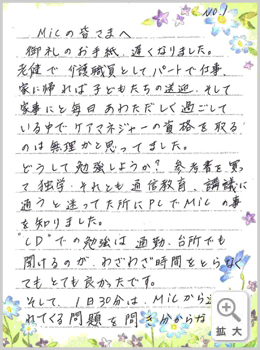 No.1
MiCの皆さまへ
御礼のお手紙、遅くなりました。
老健で介護職員としてパートで仕事、
家に帰れば子どもたちの送迎、そして
家事にと毎日あわただしく過ごして
いる中でケアマネジャーの資格を取る
のは無理かと思ってました。
どうして勉強しようか? 参考書を買っ
て独学、それとも通信教育、講議に
通うと迷ってた所にPCでMiCの事
を知りました。
"CD"での勉強は通勤、台所でも
聞けるのが、わざわざ時間をとらなく
てもとても良かったです。
そして、1日30分は、MiCから
れてくる問題を問き分からな
拡大